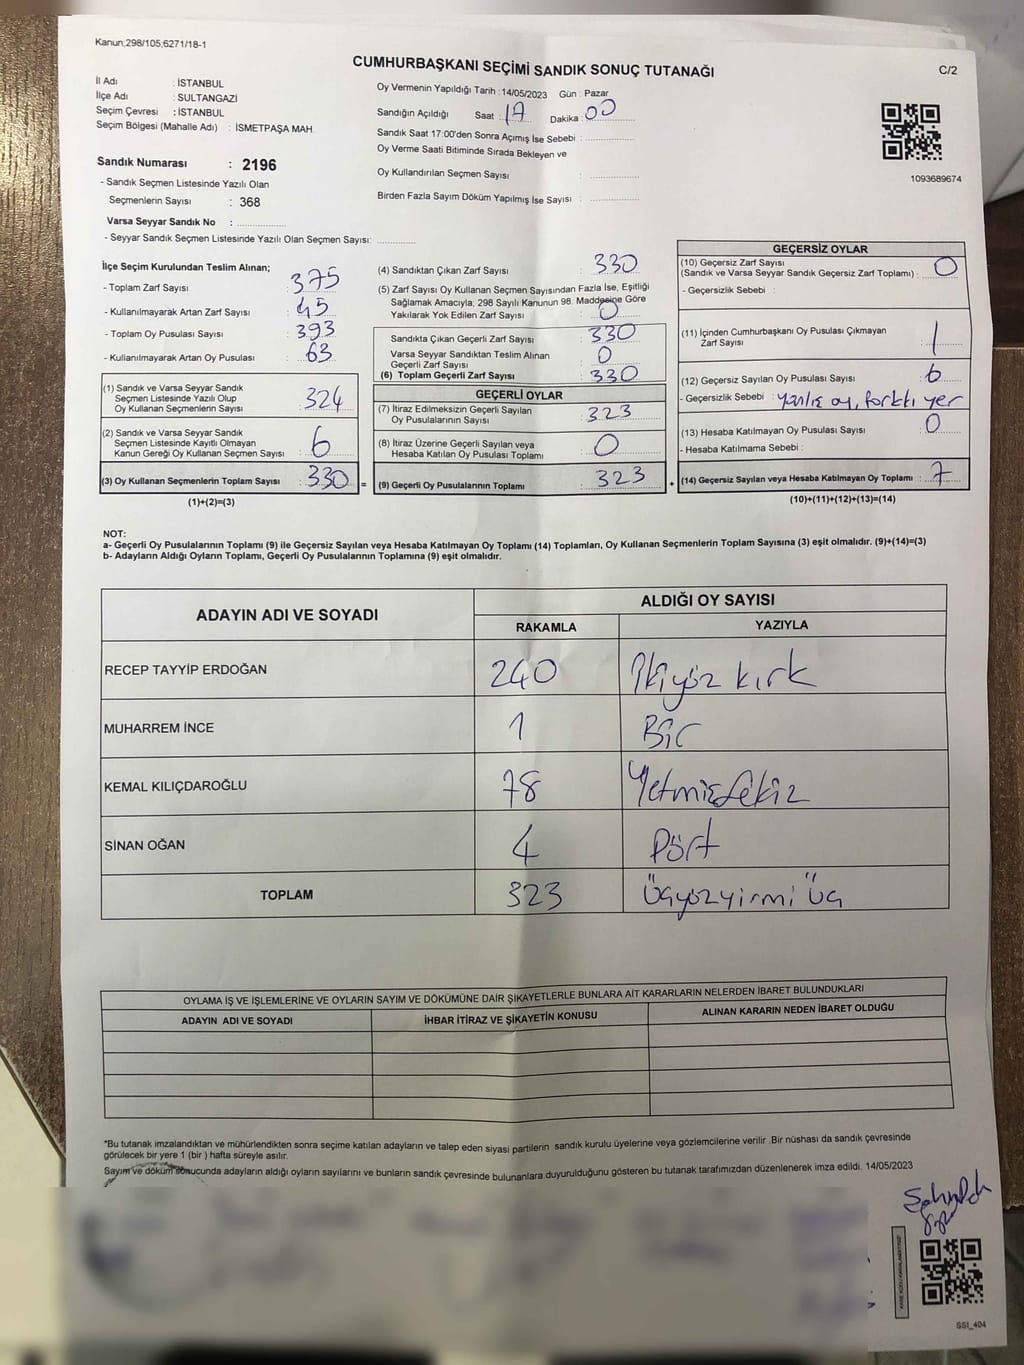 Kanun;298/105,6271/18-1
CUMHURBAŞKANI SEÇİMİ SANDIK SONUÇ TUTANAĞI
C/2
İl Adı : İSTANBUL
İlçe Adı : SULTANGAZİ
Seçim Çevresi : İSTANBUL
Seçim Bölgesi (Mahalle Adı) : İSMETPAŞA MAH.
Sandık Numarası : 2196
- Sandık Seçmen Listesinde Yazılı Olan
Seçmenlerin Sayısı : 368
Varsa Seyyar Sandık No :
- Seyyar Sandık Seçmen Listesinde Yazılı Olan Seçmen Sayısı:
Oy Vermenin Yapıldığı Tarih : 14/05/2023 Gün : Pazar
Sandığın Açıldığı Saat : 17 Dakika : 00
Sandık Saat 17:00'den Sonra Açımış İse Sebebi :
Oy Verme Saati Bitiminde Sırada Bekleyen ve
Oy Kullandırılan Seçmen Sayısı :
Birden Fazla Sayım Döküm Yapılmış İse Sayısı :
1093689674
İlçe Seçim Kurulundan Teslim Alınan;
- Toplam Zarf Sayısı : 375
- Kullanılmayarak Artan Zarf Sayısı : 45
- Toplam Oy Pusulası Sayısı : 393
- Kullanılmayarak Artan Oy Pusulası : 63
(1) Sandık ve Varsa Seyyar Sandık
Seçmen Listesinde Yazılı Olup
Oy Kullanan Seçmenlerin Sayısı : 324
(2) Sandık ve Varsa Seyyar Sandık
Seçmen Listesinde Kayıtlı Olmayan
Kanun Gereği Oy Kullanan Seçmen Sayısı : 6
(3) Oy Kullanan Seçmenlerin Toplam Sayısı : 330 =
(1)+(2)=(3)
(4) Sandıktan Çıkan Zarf Sayısı : 330
(5) Zarf Sayısı Oy Kullanan Seçmen Sayısından Fazla İse, Eşitliği
Sağlamak Amacıyla; 298 Sayılı Kanunun 98. Maddesine Göre
Yakılarak Yok Edilen Zarf Sayısı : 0
Sandıkta Çıkan Geçerli Zarf Sayısı : 330
Varsa Seyyar Sandıktan Teslim Alınan
Geçerli Zarf Sayısı : 0
(6) Toplam Geçerli Zarf Sayısı : 330
GEÇERLİ OYLAR
(7) İtiraz Edilmeksizin Geçerli Sayılan
Oy Pusulalarının Sayısı : 323
(8) İtiraz Üzerine Geçerli Sayılan veya
Hesaba Katılan Oy Pusulası Toplamı : 0
(9) Geçerli Oy Pusulalarının Toplamı : 323 +
GEÇERSİZ OYLAR
(10) Geçersiz Zarf Sayısı
(Sandık ve Varsa Seyyar Sandık Geçersiz Zarf Toplamı) : 0
- Geçersizlik Sebebi :
(11) İçinden Cumhurbaşkanı Oy Pusulası Çıkmayan
Zarf Sayısı : 1
(12) Geçersiz Sayılan Oy Pusulası Sayısı : 6
- Geçersizlik Sebebi : yanlış oy, farklı yer
(13) Hesaba Katılmayan Oy Pusulası Sayısı : 0
- Hesaba Katılmama Sebebi :
(14) Geçersiz Sayılan veya Hesaba Katılmayan Oy Toplamı : 7
(10)+(11)+(12)+(13)=(14)
NOT:
a- Geçerli Oy Pusulalarının Toplamı (9) ile Geçersiz Sayılan veya Hesaba Katılmayan Oy Toplamı (14) Toplamları, Oy Kullanan Seçmenlerin Toplam Sayısına (3) eşit olmalıdır. (9)+(14)=(3)
b- Adayların Aldığı Oyların Toplamı, Geçerli Oy Pusulalarının Toplamına (9) eşit olmalıdır.
ADAYIN ADI VE SOYADI
ALDIĞI OY SAYISI
RAKAMLA YAZIYLA
RECEP TAYYİP ERDOĞAN 240 İkiyüz kırk
MUHARREM İNCE 1 Bir
KEMAL KILIÇDAROĞLU 78 Yetmişsekiz
SİNAN OĞAN 4 Dört
TOPLAM 323 Üçyüzyirmi üç
OYLAMA İŞ VE İŞLEMLERİNE VE OYLARIN SAYIM VE DÖKÜMÜNE DAİR ŞİKAYETLERLE BUNLARA AİT KARARLARIN NELERDEN İBARET BULUNDUKLARI
ADAYIN ADI VE SOYADI İHBAR İTİRAZ VE ŞİKAYETİN KONUSU ALINAN KARARIN NEDEN İBARET OLDUĞU
*Bu tutanak imzalandıktan ve mühürlendikten sonra seçime katılan adayların ve talep eden siyasi partilerin sandık kurulu üyelerine veya gözlemcilerine verilir .Bir nüshası da sandık çevresinde
görülecek bir yere 1 (bir ) hafta süreyle asılır.
Sayım ve döküm sonucunda adayların aldığı oyların sayılarını ve bunların sandık çevresinde bulunanlara duyurulduğunu gösteren bu tutanak tarafımızdan düzenlenerek imza edildi. 14/05/2023
SSI_404